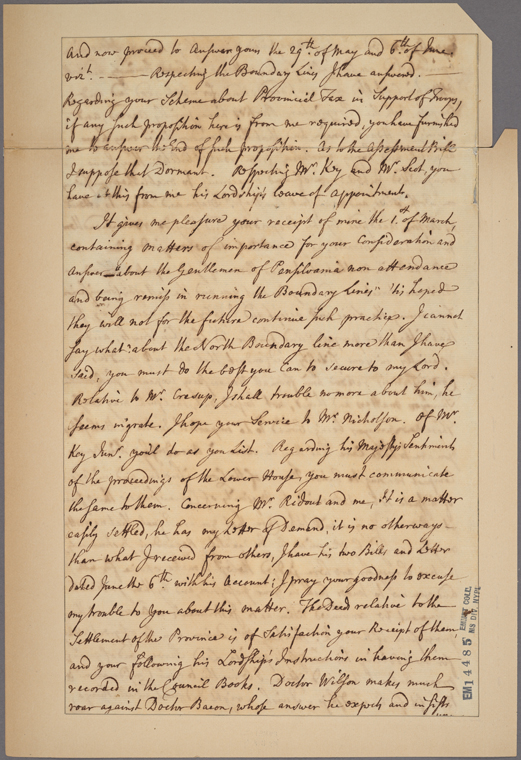 And now proceed to Answer yours the 29th. of May and 6th. of June,
vizt. ——— Respecting the Boundary Lines I have answered. ——
Regarding your Scheme about Provincial Tax in Support of Troops,
if any such proposition here is from me required, you have furnished
me to answer the End of such proposition. As to the Assessment Bill
I suppose that Dormant. Respecting Mr. Key and Mr. Scot, you
have this from me his Lordship's leave of appointment.
It gives me pleasure your receipt of mine the 1.st of March,
containing matters of importance for your Consideration and
Answer about the Gentlemen of Pensilvania non attendance
and being remiss in running the Boundary Lines" tis hoped
they will not for the future continue such practice. I cannot
say what about the North Boundary line more than I have
said, you must do the best you Can to secure to my Lord.
Relative to Mr. Cresap, I shall trouble no more about him, he
seems ingrate. I hope your Service to Mr. Nicholson. Of Mr.
Key Junr. you'l do as you List. Regarding his Majesty's Sentiments
of the proceedings of the Lower House, you must communicate
the same to them. Concerning Mr. Ridout and me, it is a matter
easily settled, he has my Letter of Demand, it is no otherways
than what I received from others, I have his two Bills and Letter
dated June the 6th. with his Account; I pray your goodness to excuse
my trouble to You about this matter. The Deed relative to the
Settlement of the Province is of Satisfaction your Receipt of them,
and your following his Lordship's Instructions in having them
recorded in the Council Books. Doctor Wilson makes much
roar against Doctor Bacon, whose answer he expects and insists
EM14485
EMMET COLL.
MS DIV. NYPL